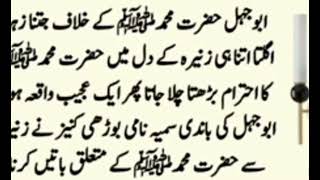 ابوجہل حضرت محمدﷺ کے خلاف جتنا زہر
اگلتا اتنا ہی زنیرہ کے دل میں حضرت محمدﷺ
کا احترام بڑھتا چلا جاتا پھر ایک عجیب واقعہ ہو
ابوجہل کی باندی سمیہ نامی بوڑھی کنیز نے زنیر
سے حضرت محمدﷺ کے متعلق باتیں کرنا